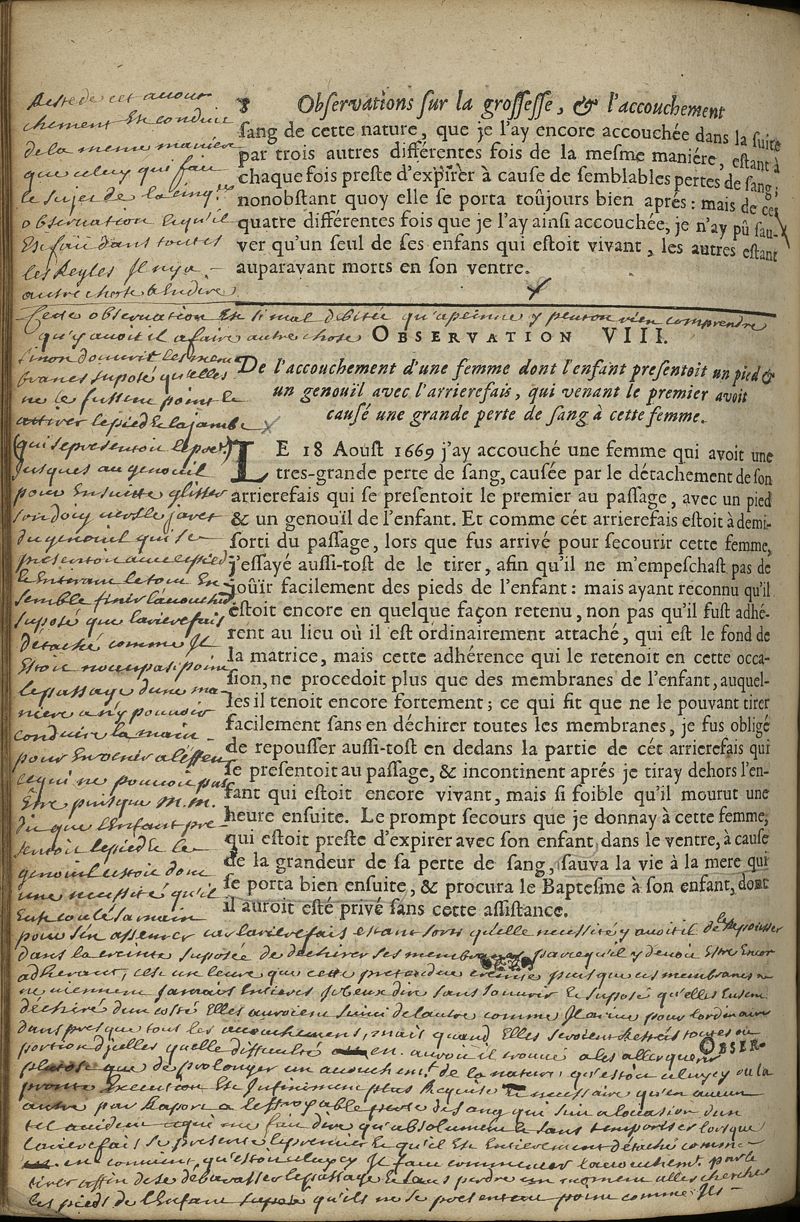 8 Observations sur la grossesse, & l'accouchement
sang de cette nature, que je l'ay encore accouchée dans la suite
par trois autres différentes fois de la mesme maniére, estant à
chaque fois preste d'expirer à cause de semblables pertes de sang;
nonobstant quoy elle se porta toûjours bien aprés: mais de ces
quatre différentes fois que je l'ay ainsi accouchée, je n'ay pû sau-
ver qu'un seul de ses enfans qui estoit vivant, les autres estant
auparavant morts en son ventre.
Reste de cet accou
chement est conduit
de la meme maniere
que celuy qui fait
le sujet de la cinq.
observation et qu'il
est fait dans toutes
les Regles Il ny a
autre chose a
Cette observation est si mal qu'a peinne y peut on rien comprendre
qu'y avoit il a faire autre chose
OBSERVATION VIII.
De l'accouchement d'une femme dont l'enfant presentoit un pied &
un genouïl avec l'arrierefais, qui venant le premier avoit
causé une grande perte de sang à cette femme.
LE 18 Aoust 1669 j'ay accouché une femme qui avoit une
tres-grande perte de sang, causée par le détachement de son
arrierefais qui se presentoit le premier au passage, avec un pied
& un genoüil de l'enfant. Et comme cét arrierefais estoit à demi-
sorti du passage, lors que fus arrivé pour secourir cette femme,
j'essayé aussi-tost de le tirer, afin qu'il ne m'empeschast pas de
joüir facilement des pieds de l'enfant: mais ayant reconnu qu'il
estoit encore en quelque façon retenu, non pas qu'il fust adhé-
rent au lieu où il est ordinairement attaché, qui est le fond de
la matrice, mais cette adhérence qui le retenoit en cette occa-
sion, ne procedoit plus que des membranes de l'enfant, auquel-
les il tenoit encore fortement; ce qui fit que ne le pouvant tirer
facilement sans en déchirer toutes les membranes, je fus obligé
de repousser aussi-tost en dedans la partie de cét arrierefais qui
se presentoit au passage, & incontinent aprés je tiray dehors l'en-
fant qui estoit encore vivant, mais si foible qu'il mourut une
heure ensuite. Le prompt secours que je donnay à cette femme,
qui estoit preste d'expirer avec son enfant dans le ventre, à cause
de la grandeur de sa perte de sang, sauva la vie à la mere qui
se porta bien ensuite, & procura le Baptesme à son enfant, dont
il auroit esté privé sans cette assistance.
sinon d'ouvrir les mem
branes suposé qu'elles
ne le fussent point et
attirer le pied et la jambe
(qui se presentoit le per)
jusques au genouil
pour ensuitte glisser
son doit vers le jaret
du genouil qui se
presentoit avec le pied
semble finir l'acouchet
suposé que larierefais
détaché comme Il
estoit n'ocupast point
le passage d'une ma
niere a n'y pouvoir
conduire la main
pour en venir a l'effet
ce qui ne pouvoit pas
Être puisque M.M.
dit que l'Enfant pre
sentoit le pied et le
genouil estoit donc
une necessité qu'il
eust coulé sa main
pour s'en asseurer car larierefais estant sorti qu'elle necessité y avoit il de le repousser
dans la creinte suposée de dechirer ses membranes parce qu'il y devoit estre encor
adherant, cest un leure que cette pretendue puisque ces membranes ne
ne viennent jamais entieres je veux dire sans s'ouvrir et suposé qu'elles eussent
déchiré d'un costé Elles auroient suivi de l'autre comme Il arive pour l'ordinaire
dans presque tous les acouchements, mais quand Elles seroient restées toutes ou
portion d'icelles quelle difficulté en avoit il trouvé a les aller querir
plutost que de prolonger un acouchemt. de la nature qu'estoit celuycy ou la
pronte Execution est Infiniment plus Requise et necessaire qu'en aucun
autre par Raport a l'effroyable perte de sang qui suit a locasion d'un
tel accident ce qui me fait dire qu'absolument et sans temporiser lorsque
larierefais se presente le premier et qu'il est entierement détaché comme
en convient qu'estoit celuycy Il faut commencer l'acouchemt. par le
tirer affin de se débarasser le passage et sans perdre un moment aller chercher
les pieds de l'Enfant suposé qu'ils ne se presentent point comme Ils
OBSER-